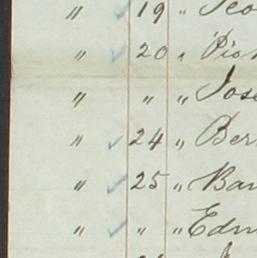 " ✓ 19 " Geo
" ✓ 20 "
" " " Jose
" ✓ 24 " Ber
" ✓ 25 " Bar
" ✓ " " Edm